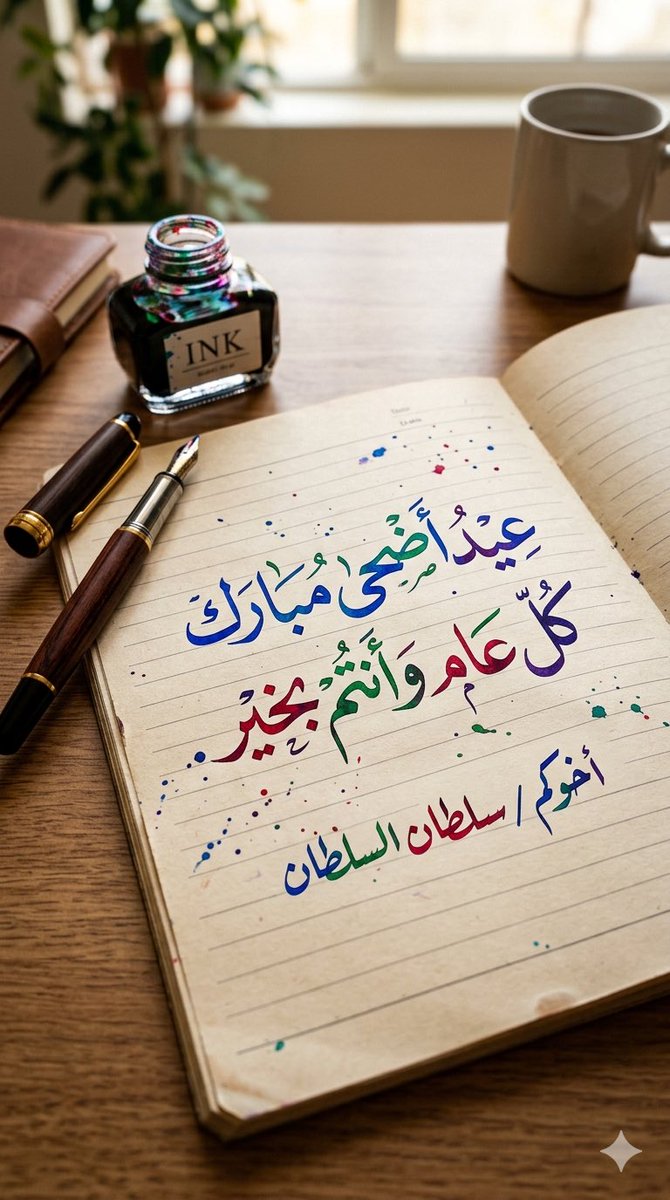 INK
عِيْدُ أَضْحى مُبَارَكْ
كُلّ عَام وَأَنتُمْ بِخَيْر
أخوكم / سلطان السلطان